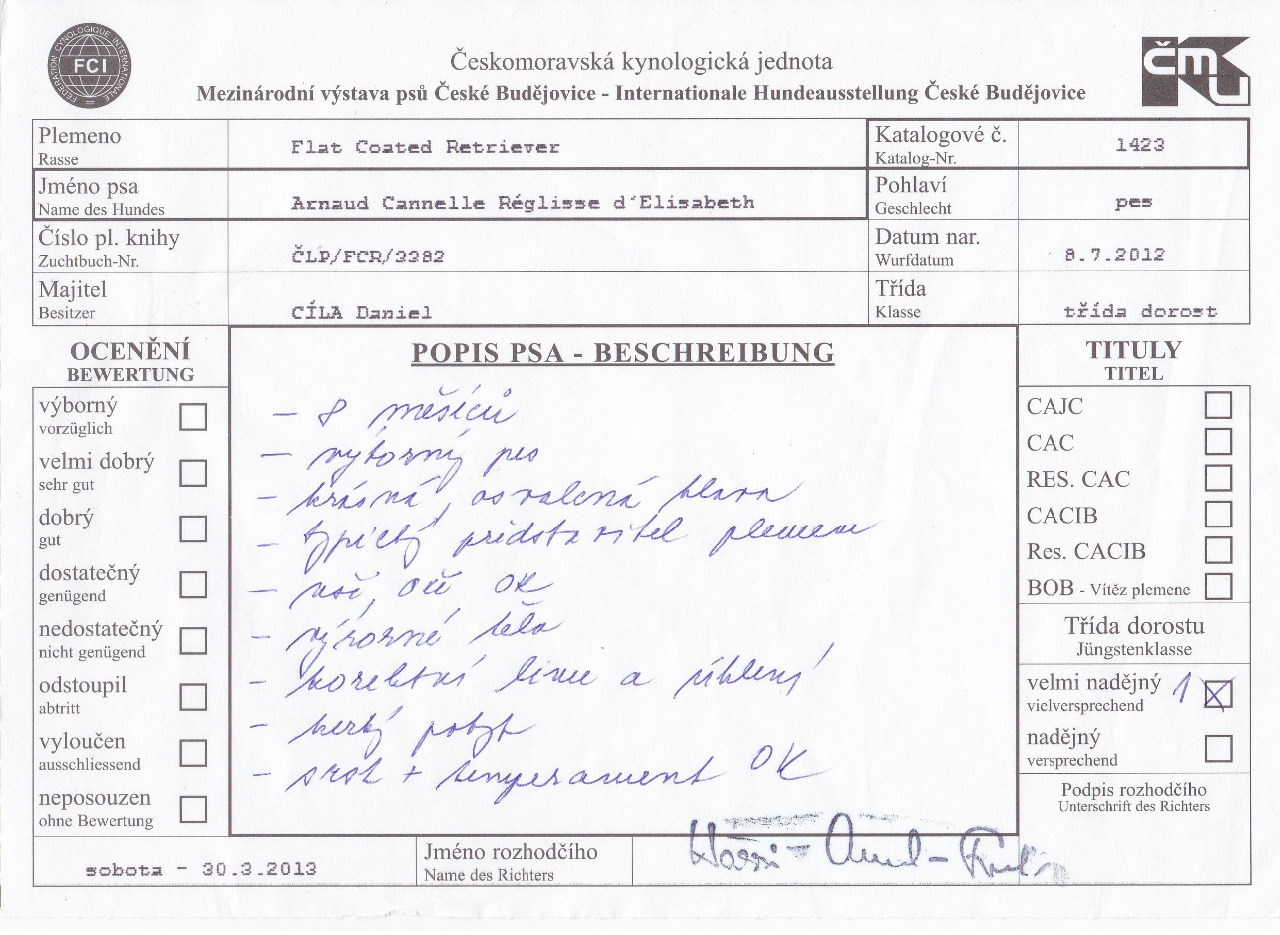 FEDERATION CYNOLOGIQUE INTERNATIONALE
FCI
Českomoravská kynologická jednota
Mezinárodní výstava psů České Budějovice - Internationale Hundeausstellung České Budějovice
ČMKU
Plemeno
Rasse
Flat Coated Retriever
Katalogové č.
Katalog-Nr.
1423
Jméno psa
Name des Hundes
Arnaud Cannelle Réglisse d´Elisabeth
Pohlaví
Geschlecht
pes
Číslo pl. knihy
Zuchtbuch-Nr.
ČLP/FCR/3382
Datum nar.
Wurfdatum
8.7.2012
Majitel
Besitzer
CÍLA Daniel
Třída
Klasse
třída dorost
OCENĚNÍ
BEWERTUNG
výborný
vorzüglich
velmi dobrý
sehr gut
dobrý
gut
dostatečný
genügend
nedostatečný
nicht genügend
odstoupil
abtritt
vyloučen
ausschliessend
neposouzen
ohne Bewertung
POPIS PSA - BESCHREIBUNG
– 8 měsíců
– výborný pes
– krásná, osvalená hlava
– typický představitel plemene
– uši, oči OK
– výborné tělo
– korektní linie a úhlení
– hezký pohyb
– srst + temperament OK
TITULY
TITEL
CAJC
CAC
RES. CAC
CACIB
Res. CACIB
BOB - Vítěz plemene
Třída dorostu
Jüngstenklasse
velmi nadějný 1 X
vielversprechend
nadějný
versprechend
Podpis rozhodčího
Unterschrift des Richters
sobota - 30.3.2013
Jméno rozhodčího
Name des Richters